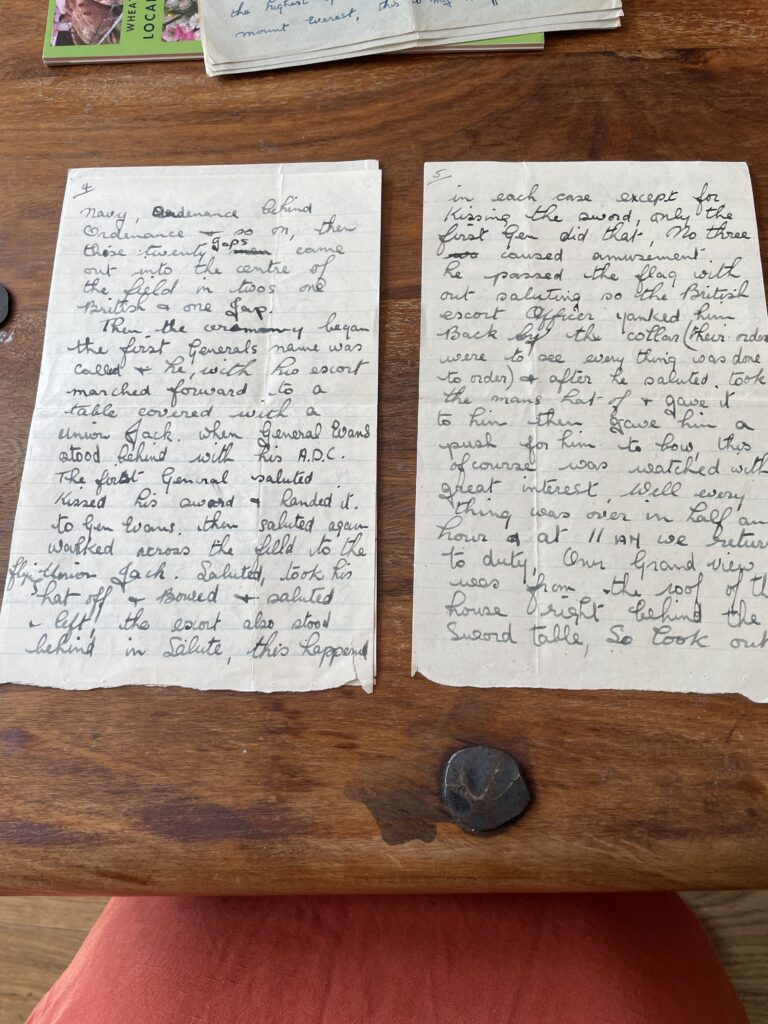 WHEA
LOCAL
the highest
mount Everest, this is my
4
Navy, Ordenance behind
Ordenance & so on, then
these twenty Japs men came
out into the centre of
the field in twos one
British & one Jap.
Then the ceremony began
the first Generals name was
called & he, with his escort
marched forward to a
table covered with a
Union Jack. when General Evans
stood behind with his A.D.C.
The first General saluted
Kissed his sword & handed it.
to Gen Evans. then saluted again
walked across the field to the
Union Jack. Saluted, took his
hat off & Bowed & saluted
& left, the escort also stood
behind in Salute, this happened
5
in each case except for
Kissing the sword, only the
first Gen did that, No three
caused amusement.
he passed the flag with
out saluting so the British
escort Officer yanked him
Back by the collar (their orders
were to see every thing was done
to order) & after he saluted. took
the mans hat of & gave it
to him then gave him a
push for him to bow, this
ofcourse was watched with
great interest, Well every
thing was over in half an
hour & at 11 AM we return
to duty, Our Grand view
was from the roof of th
house right behind the
Sword table, So look out